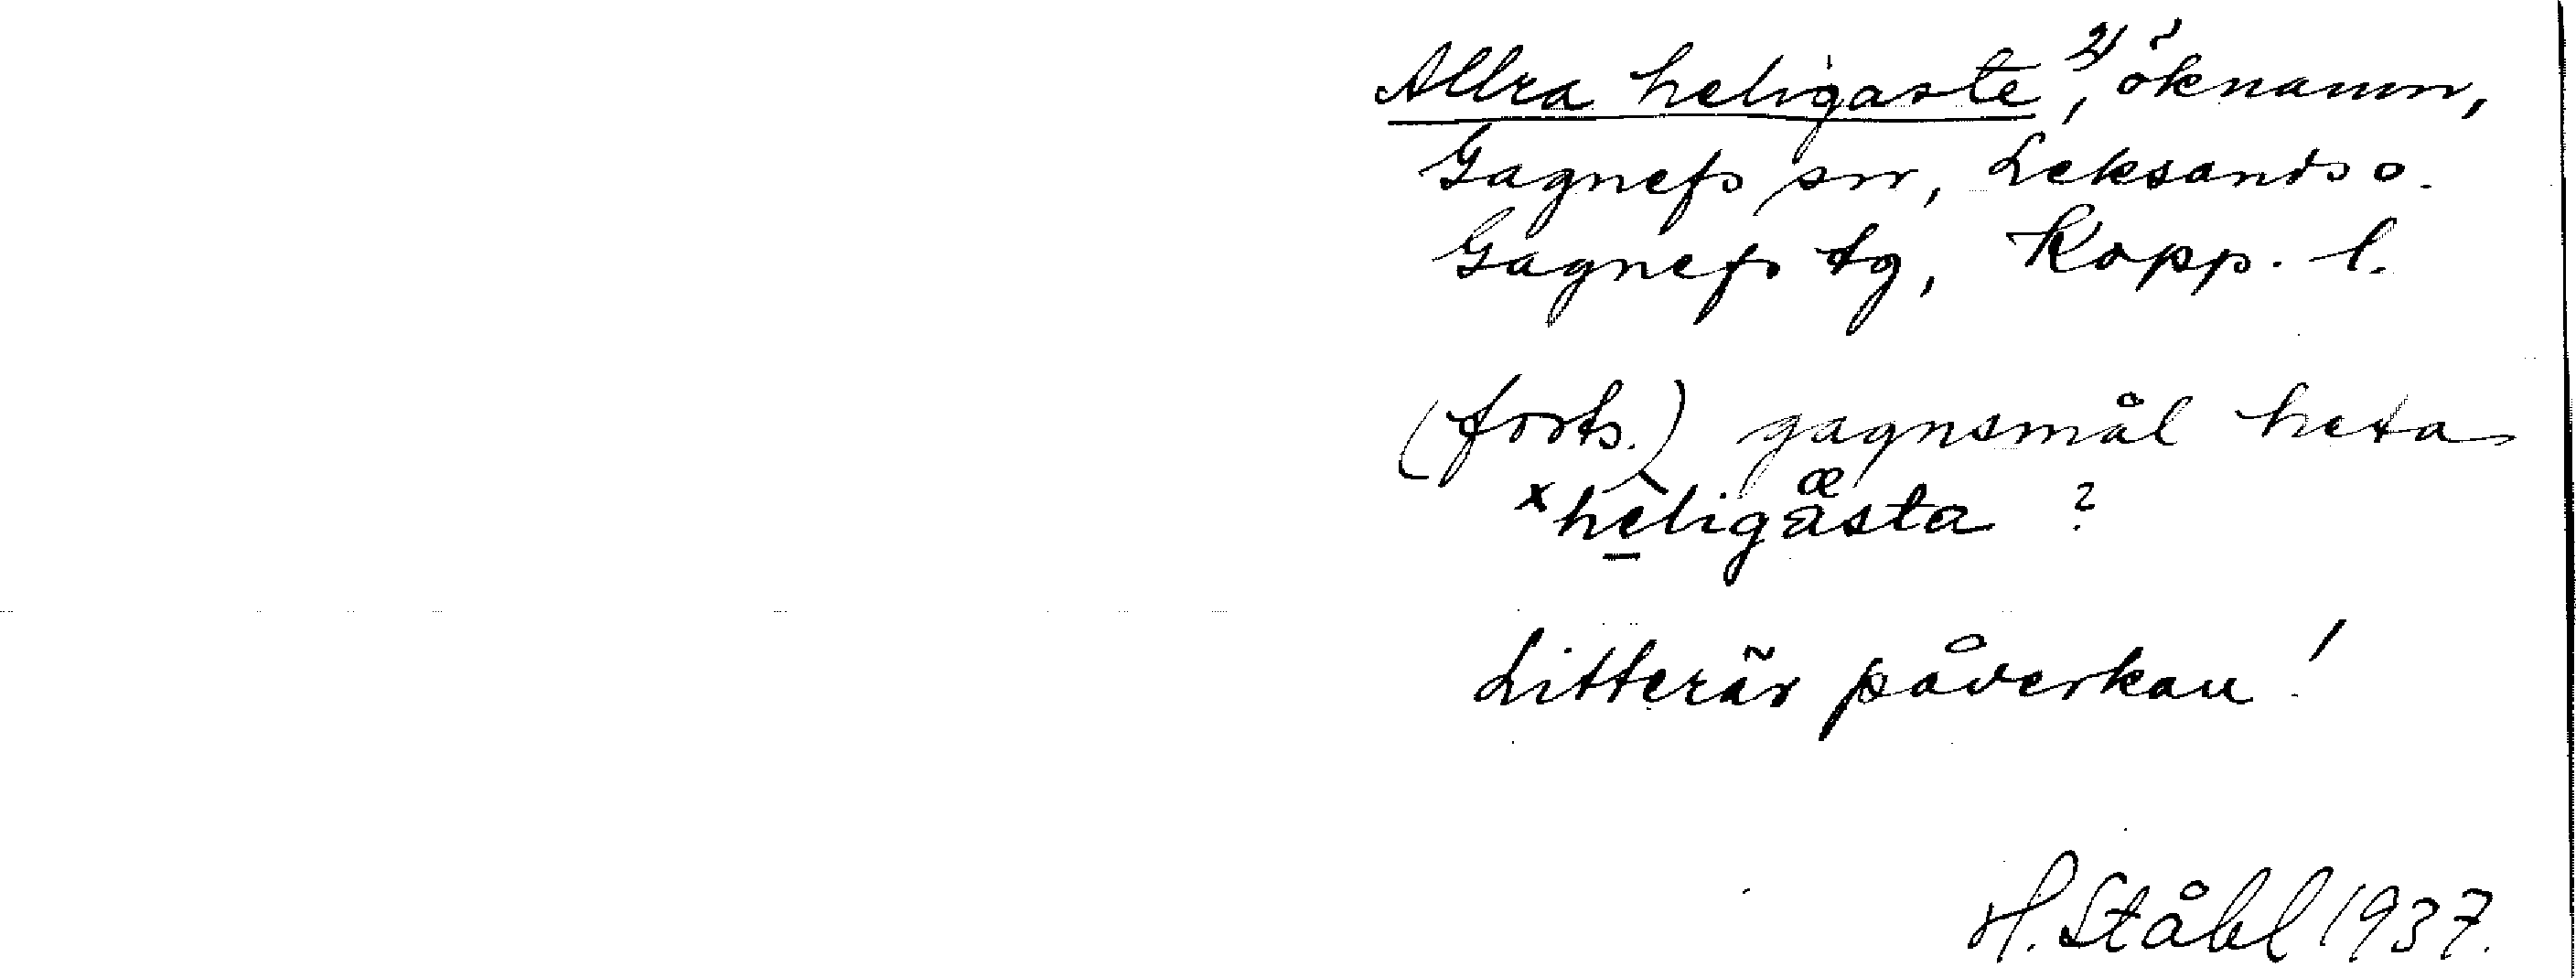 Allra heligaste, 2) öknamn,
Gagnefs sn, Leksands o.
Gagnefs tg, Kopp. l.
(forts.) gagnsmål heta
×hèligåsta ?
æ
Litterär påverkan!
H. Ståhl 1937.